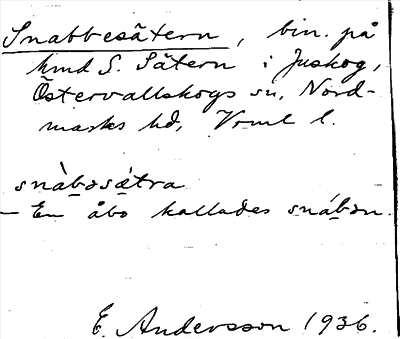 Snabbesätern, bin. på
hmd S. Sätern i Juskog,
Östervallskogs sn, Nord-
marks hd, Vrml l.
snàbɔsǽtra
– En åbo kallades snábɔn.
E. Andersson 1936.